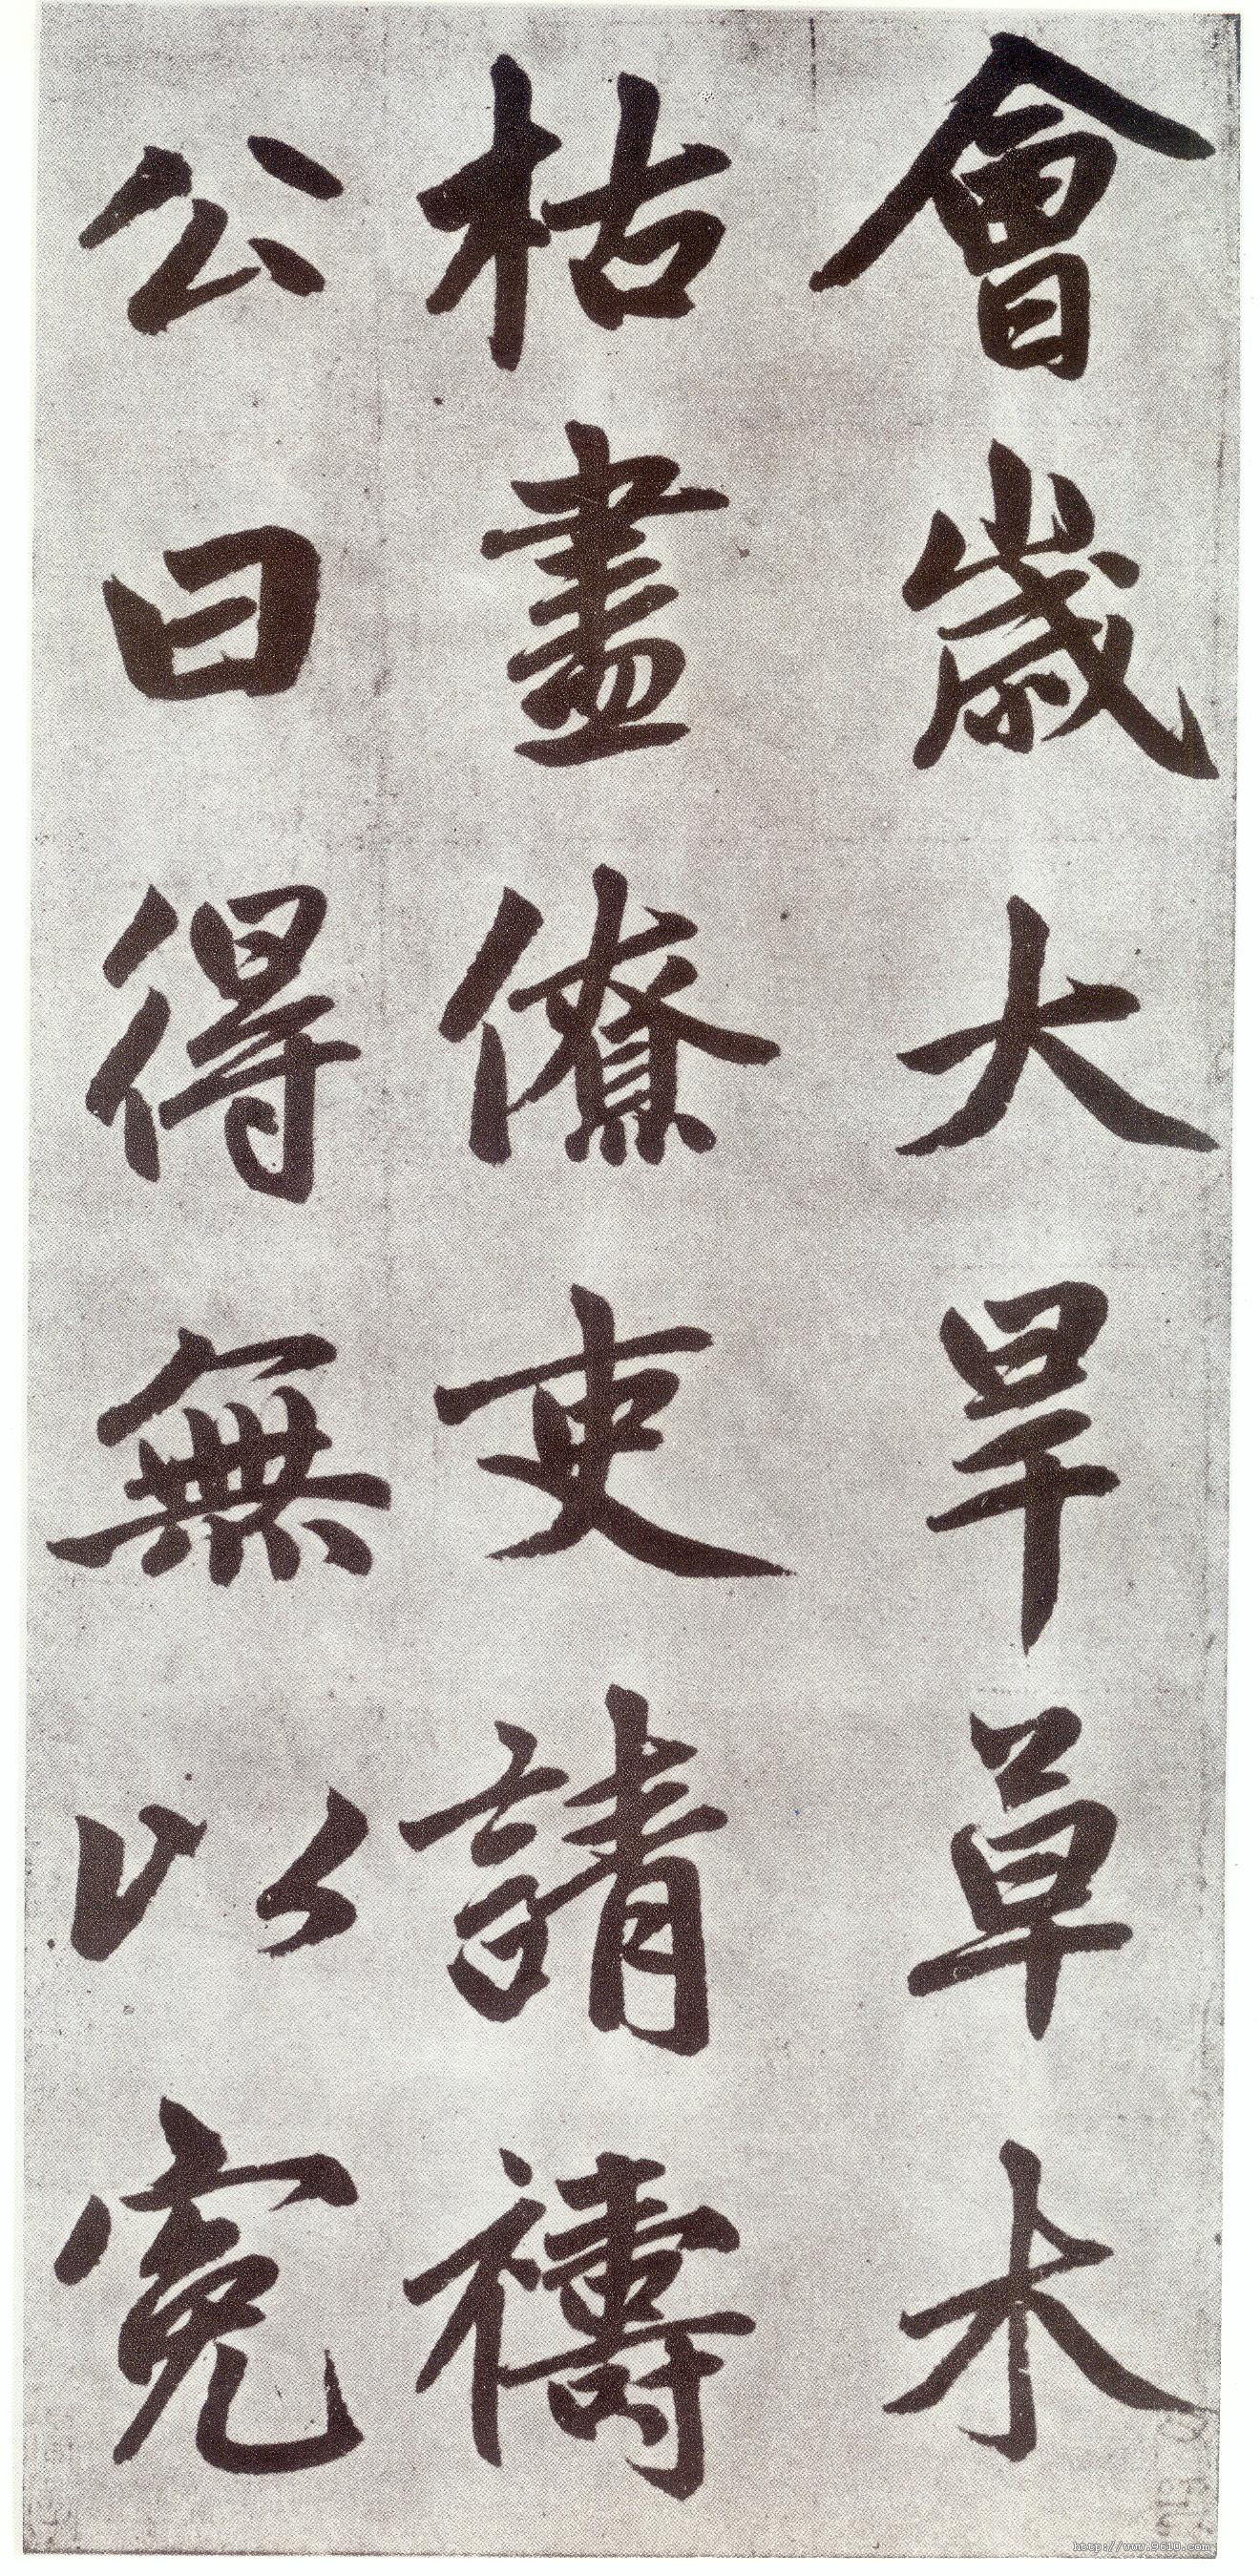 會歲大旱草木
枯盡僚吏請禱
公曰得無以冤
http://www.9610.com